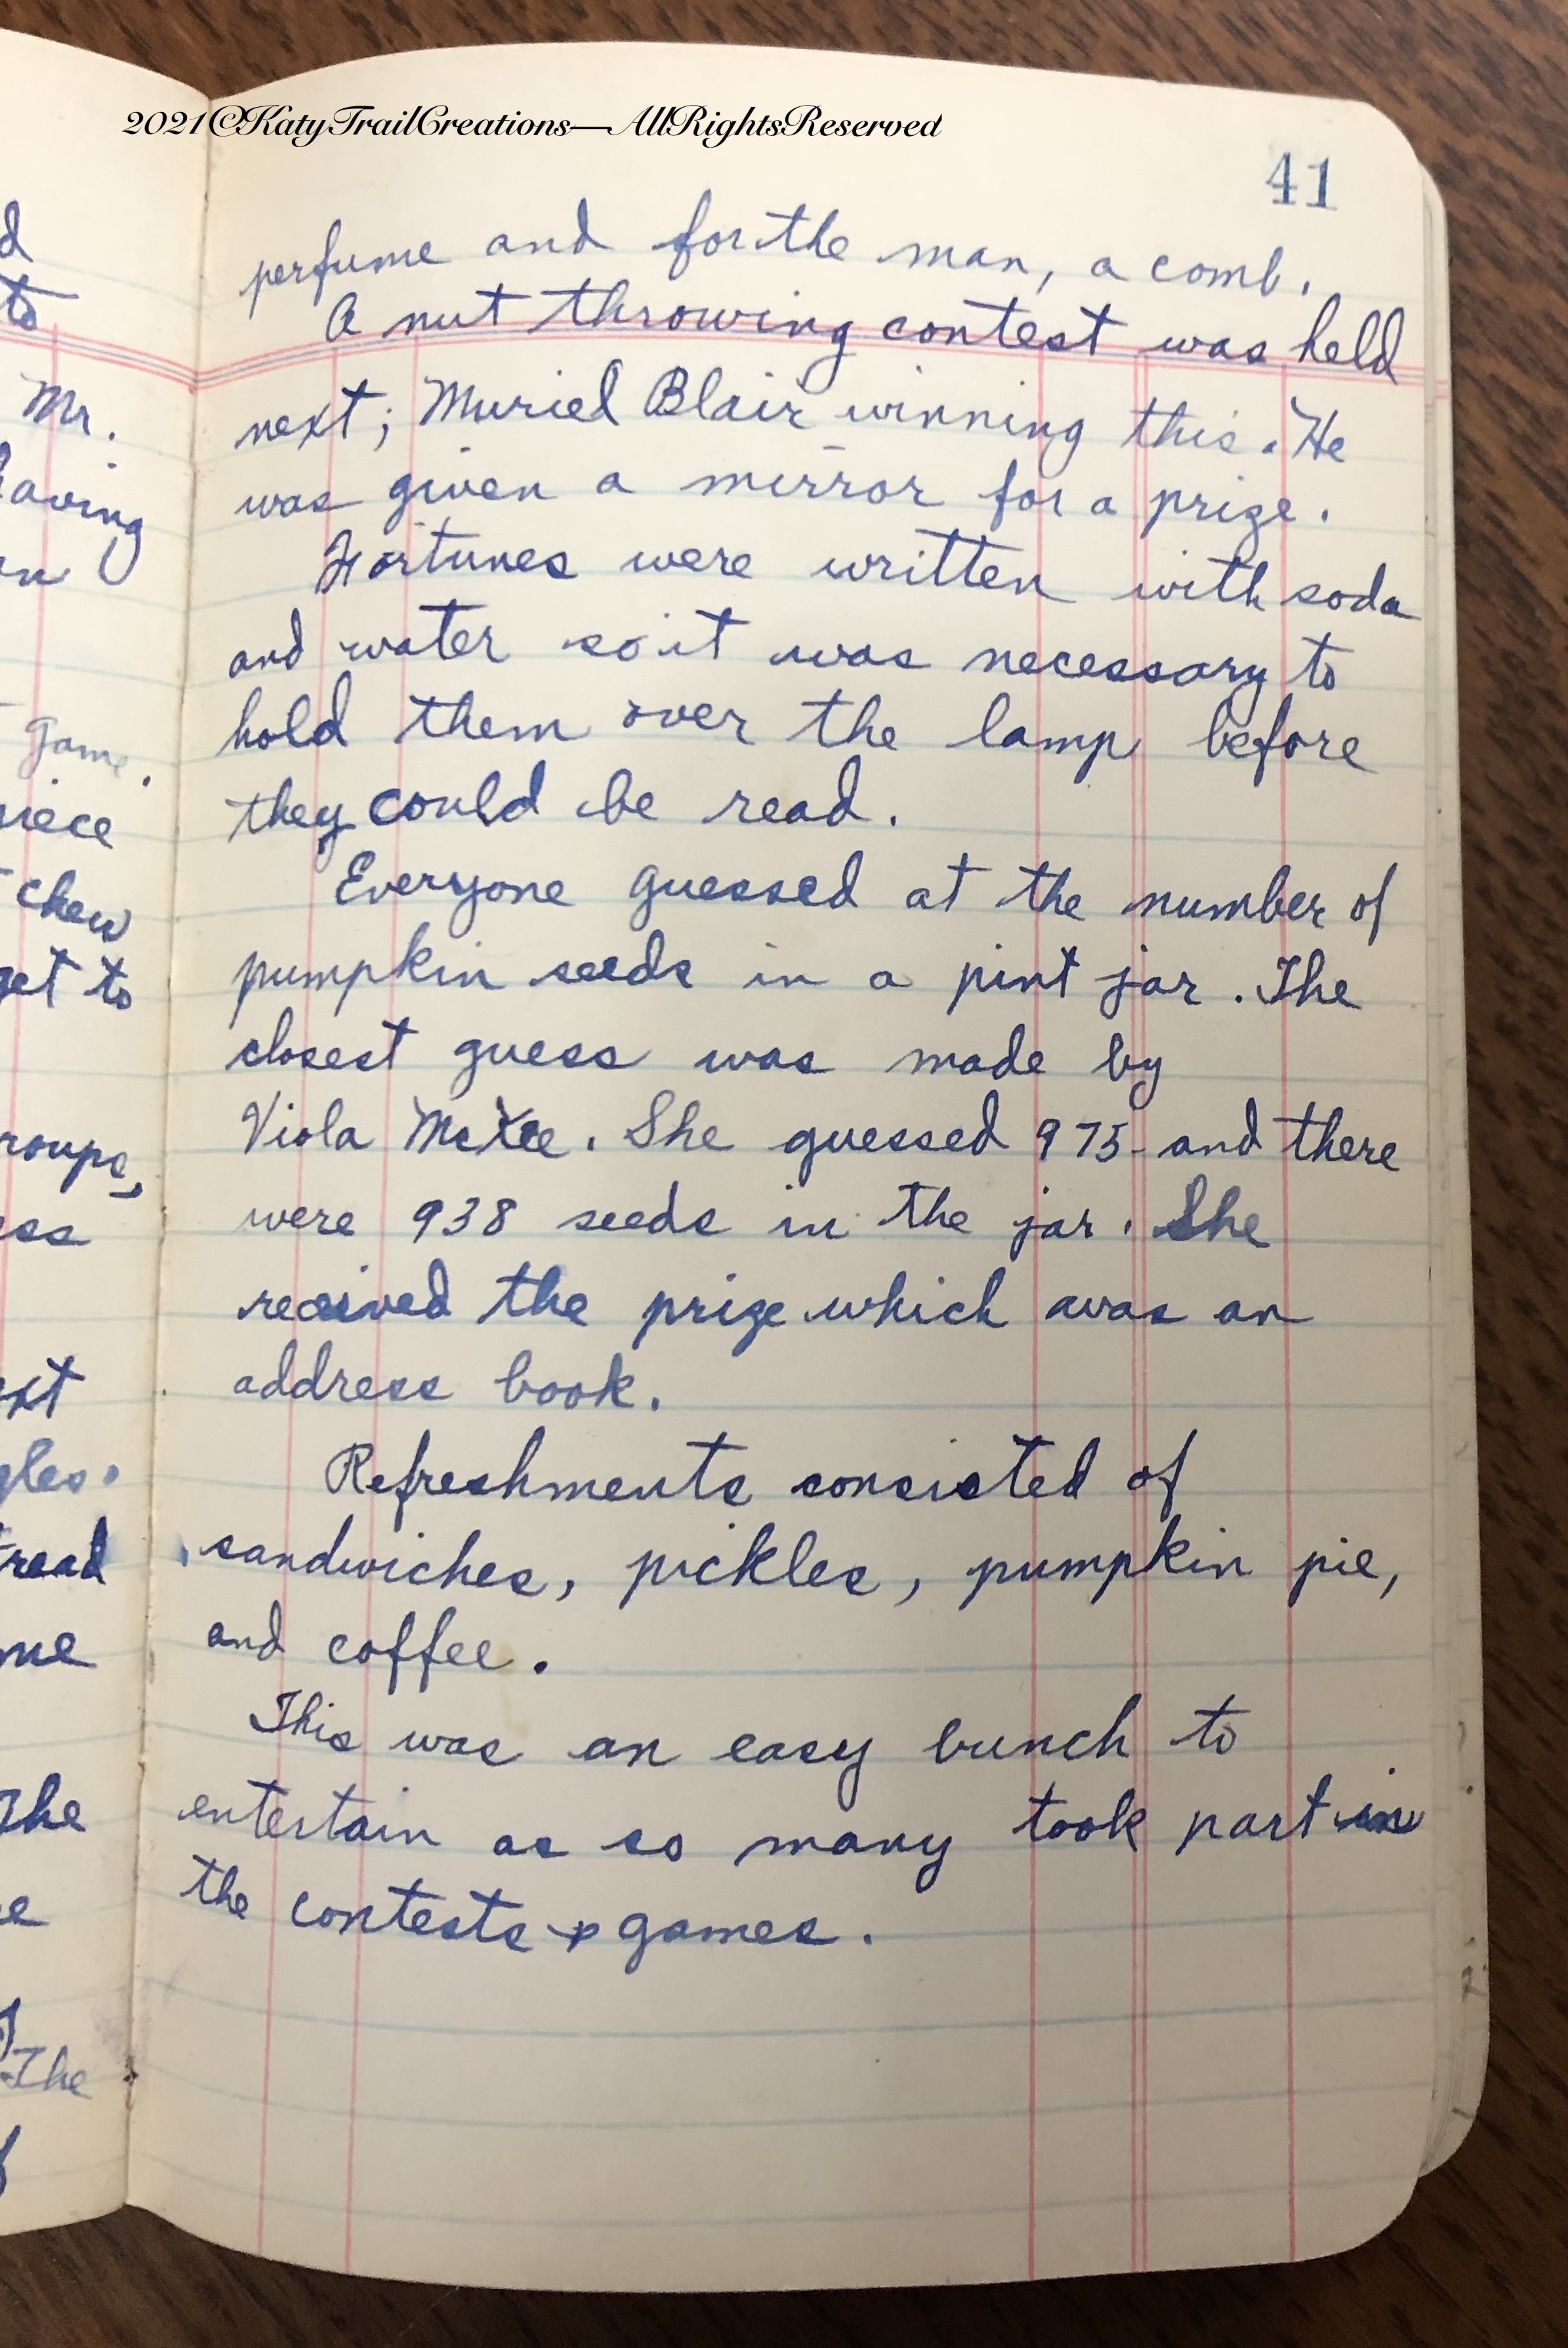 2021©KatyTrailCreations—AllRightsReserved
41
perfume and for the man, a comb.
A nut throwing contest was held
next; Muriel Blair winning this. He
was given a mirror for a prize.
Fortunes were written with soda
and water so it was necessary to
hold them over the lamp before
they could be read.
Everyone guessed at the number of
pumpkin seeds in a pint jar. The
closest guess was made by
Viola McKee. She guessed 975 and there
were 938 seeds in the jar. She
received the prize which was an
address book.
Refreshments consisted of
sandwiches, pickles, pumpkin pie,
and coffee.
This was an easy bunch to
entertain as so many took part in
the contests & games.
to
Mr.
game.
chew
get to
read
The
The